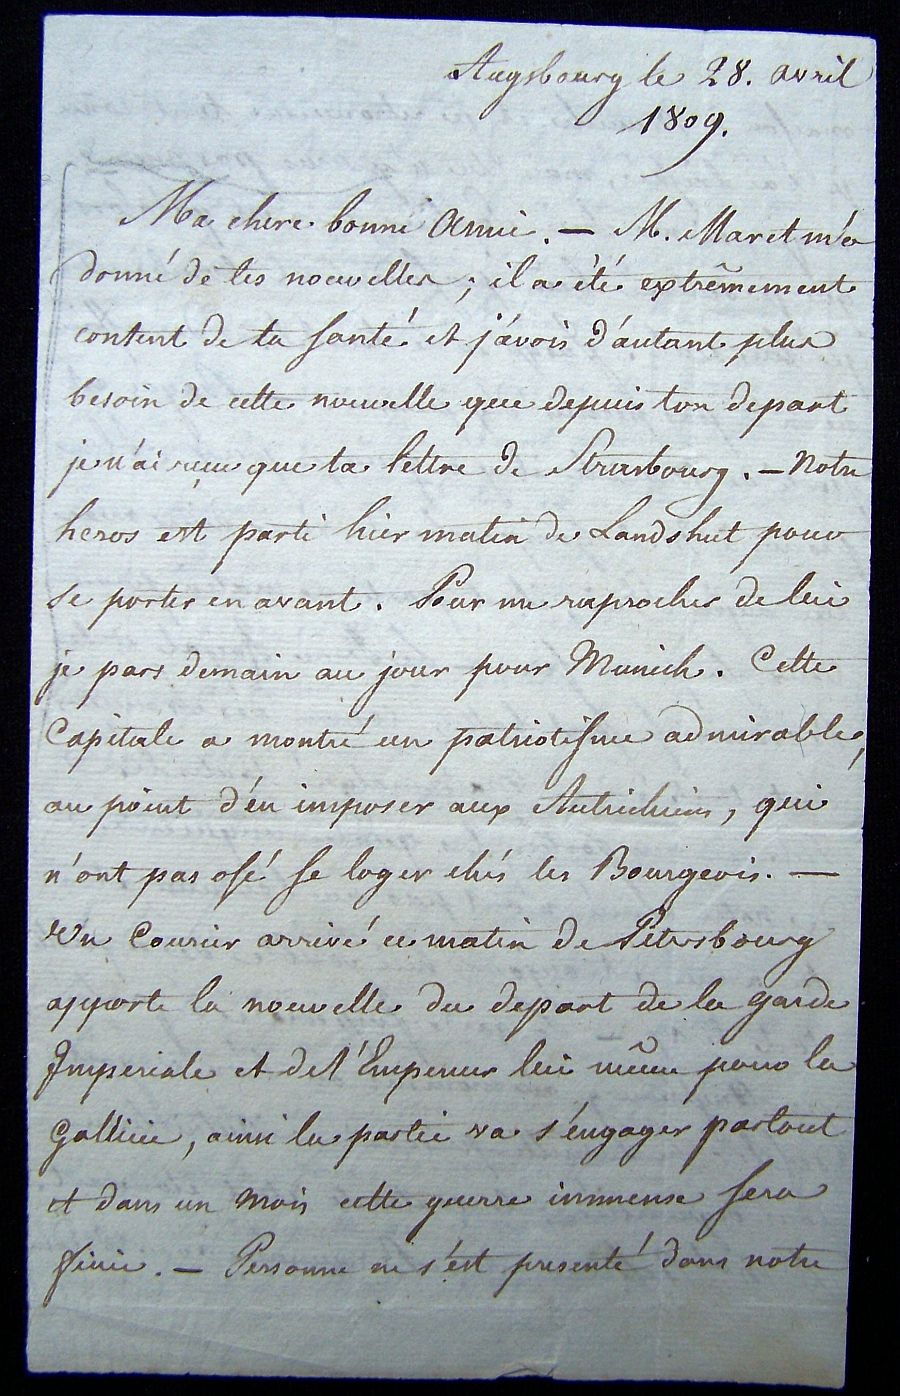 Augsbourg le 28. avril
1809.
Ma chere bonne Amie. — M. Maret m'a
donné de tes nouvelles ; il a été extrêmement
content de ta santé et j'avois d'autant plus
besoin de cette nouvelle que depuis ton depart
je n'ai reçu que ta lettre de Strasbourg. — Notre
heros est parti hier matin de Landshut pour
se porter en avant. Pour me raprocher de lui
je pars demain au jour pour Munich. Cette
Capitale a montré un patriotisme admirable,
au point d'en imposer aux Autrichiens, qui
n'ont pas osé se loger chés les Bourgeois. —
Un Courier arrivé ce matin de Petersbourg
apporte la nouvelle du depart de la garde
Imperiale et de l'Empereur lui même pour la
Gallicie, ainsi la partie va s'engager partout
et dans un mois cette guerre immense sera
finie. — Personne ne s'est presenté dans notre